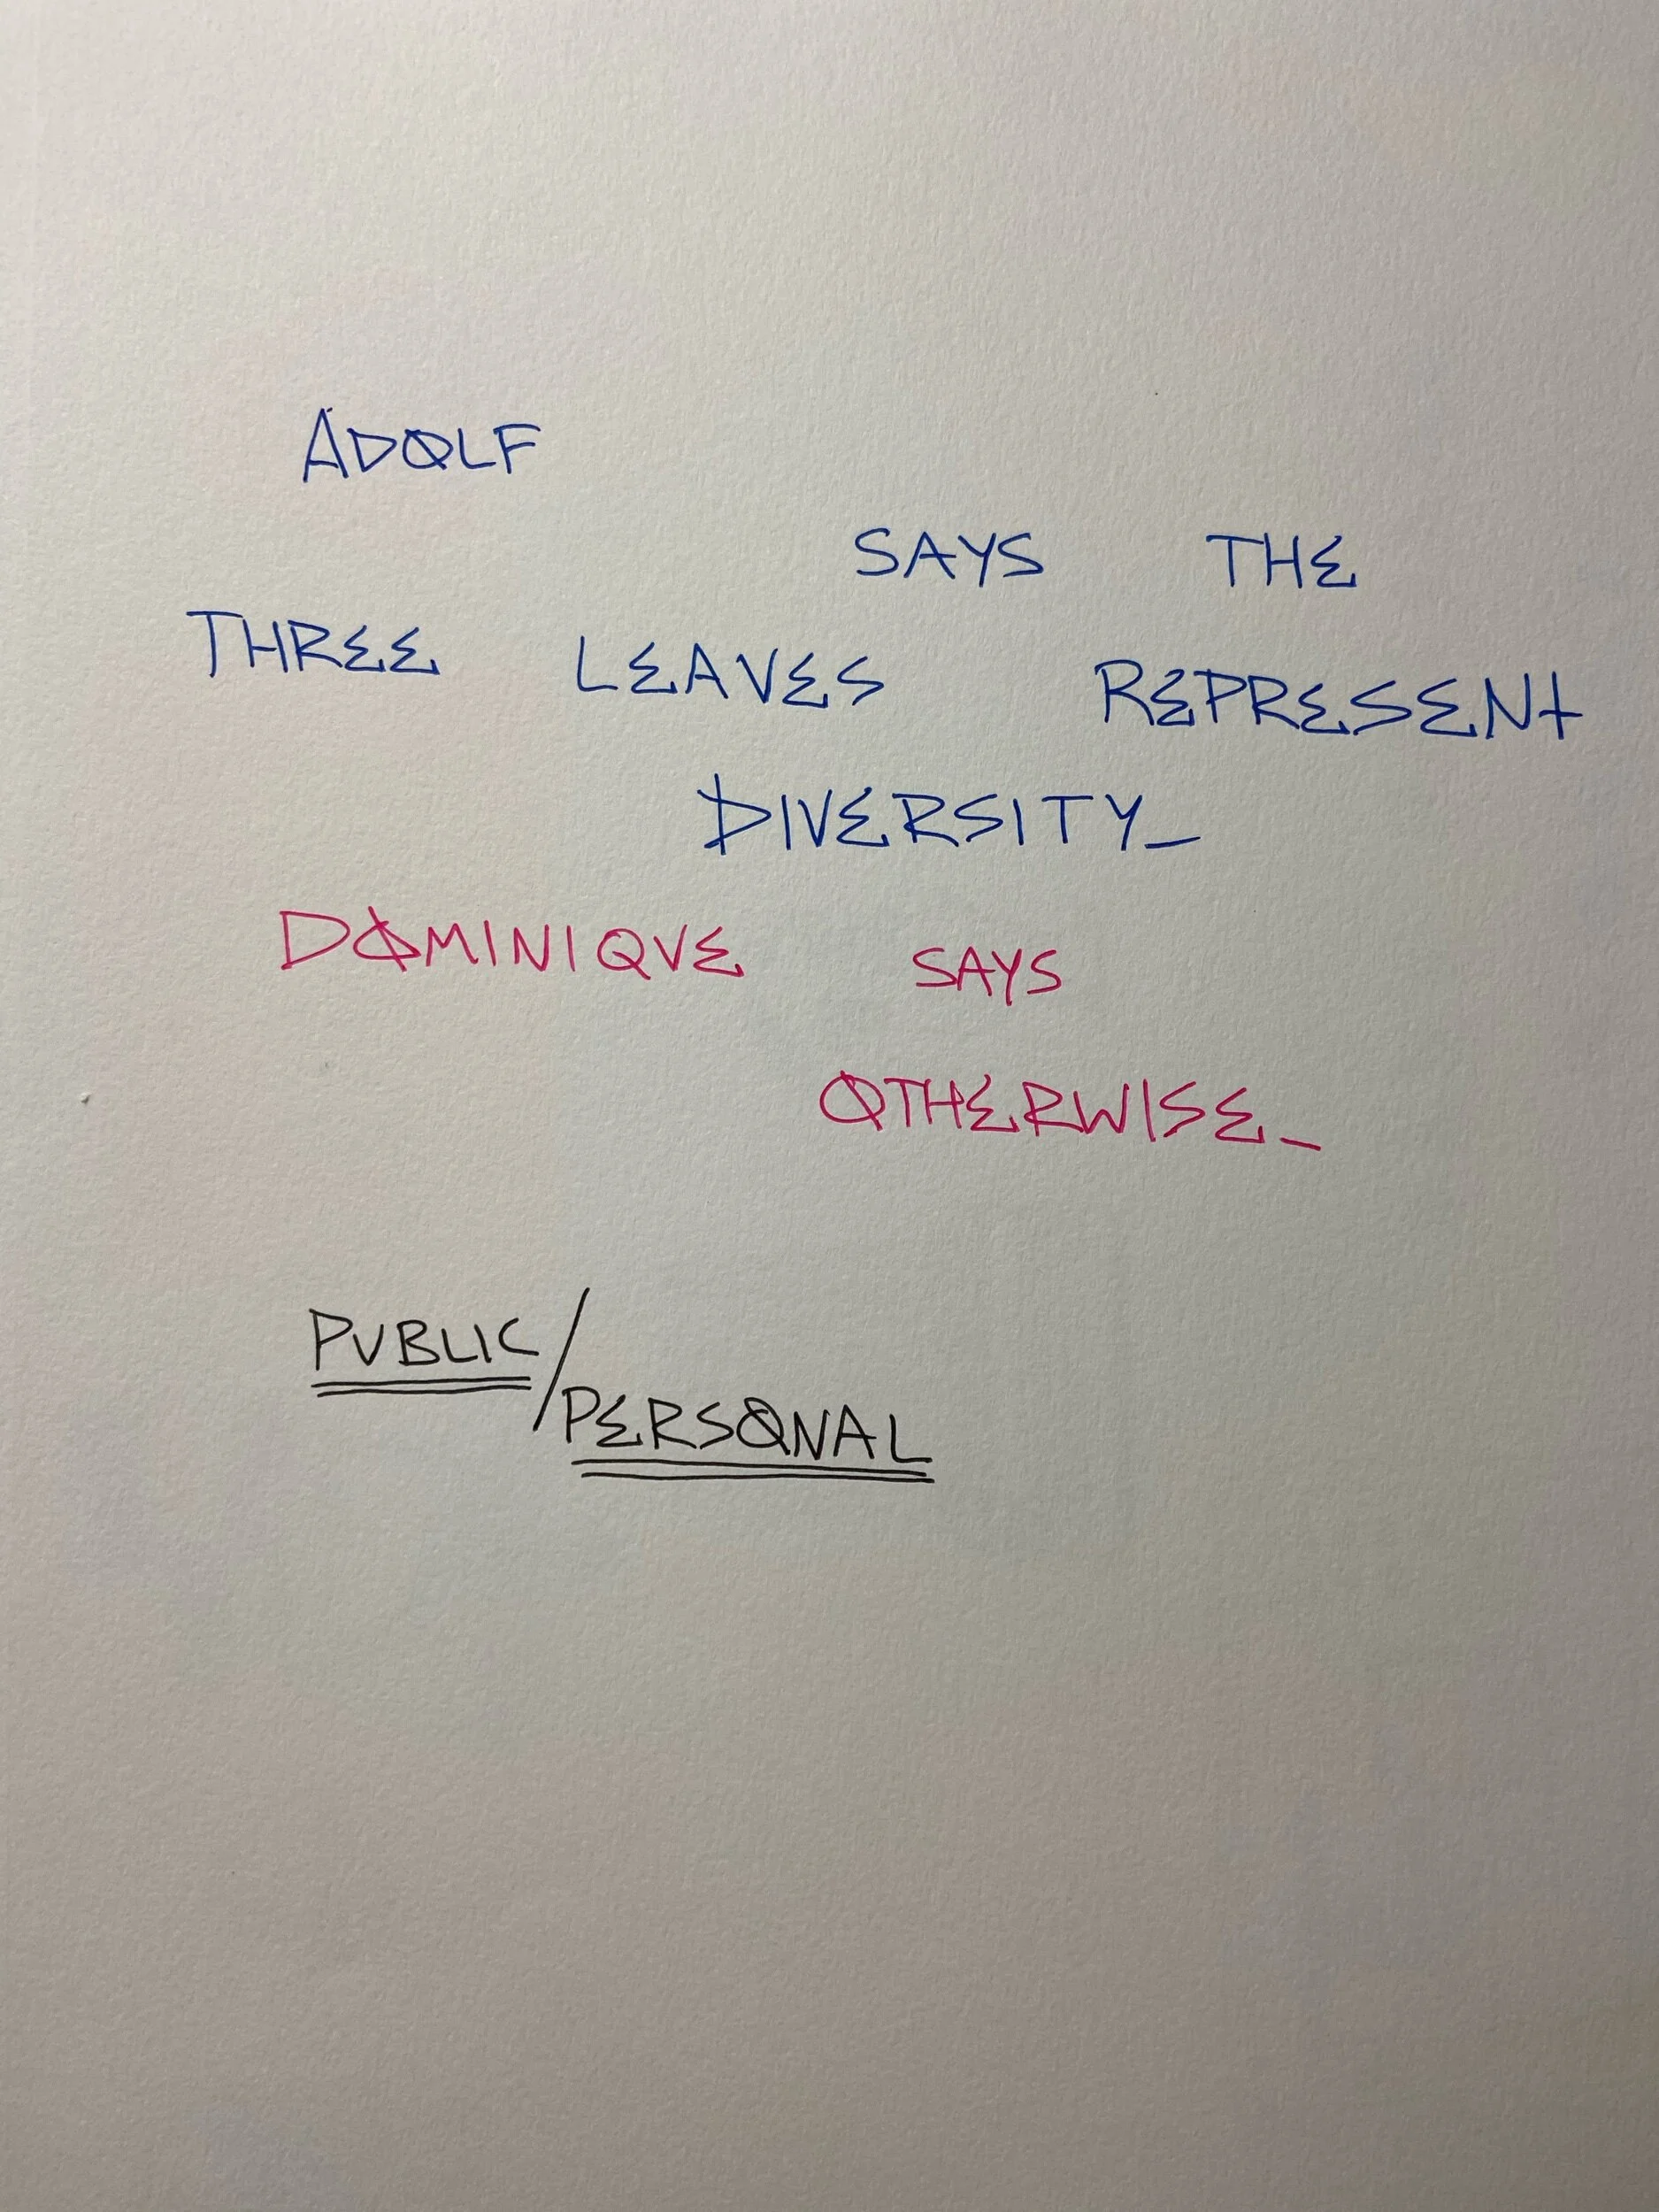 ADOLF
SAYS THE
THREE LEAVES REPRESENT
DIVERSITY_
DOMINIQVE SAYS
OTHERWISE_
PVBLIC/
PERSONAL